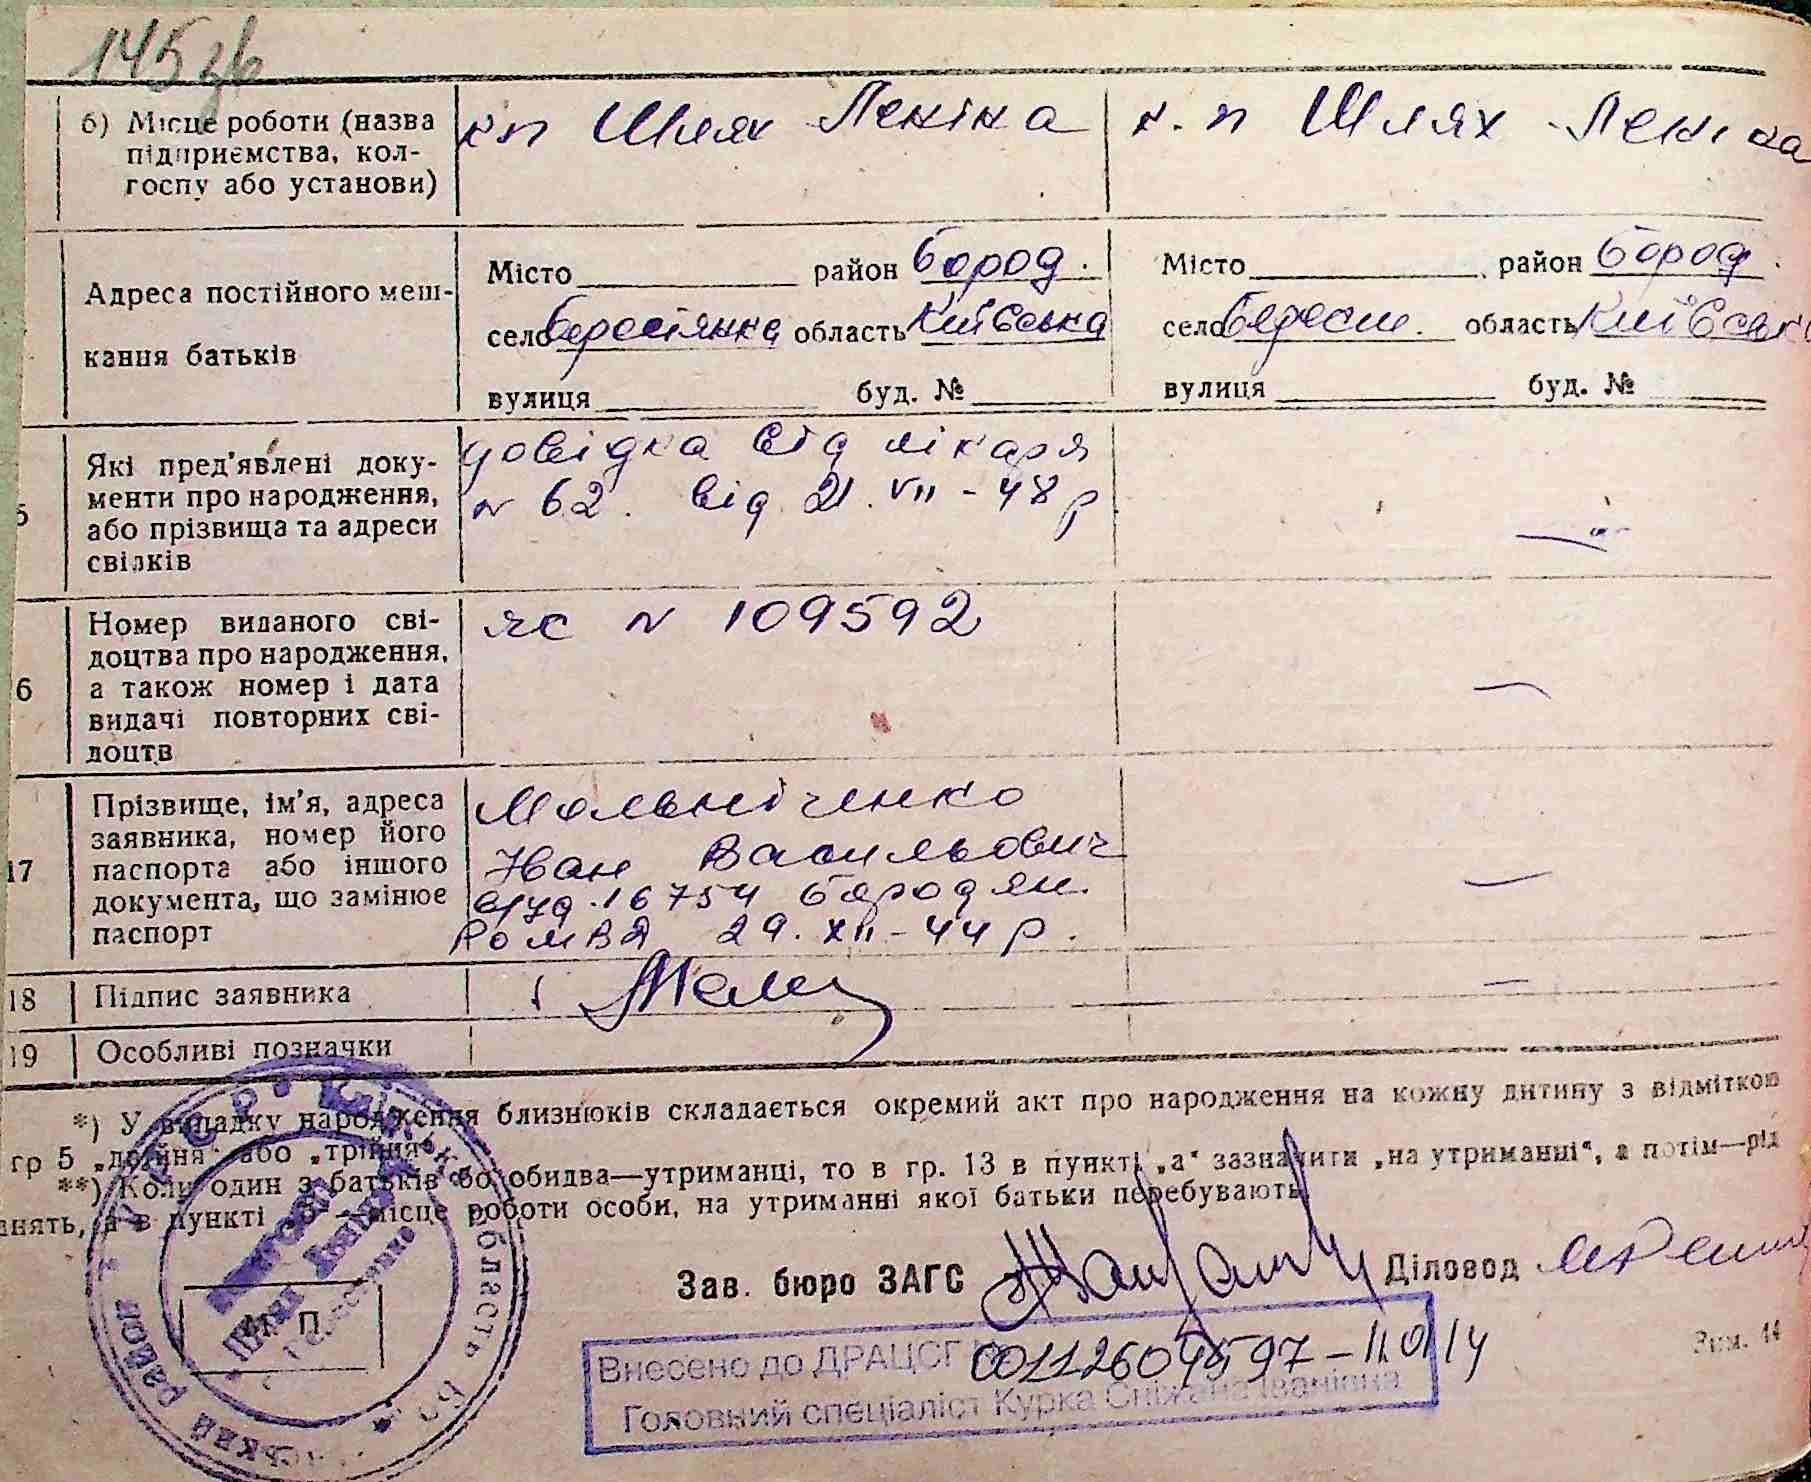 145 зв
б) Місце роботи (назва підприємства, колгоспу або установи)
кп Шлях Леніна
к. п Шлях Леніна
Адреса постійного мешкання батьків
Місто район Бород.
село Берестянка область Київська
вулиця буд. №
Місто район Бород.
село Берест. область Київськ
вулиця буд. №
5
Які пред'явлені документи про народження, або прізвища та адреси свідків
довідка від лікаря
№ 62. від 21. VII - 48 р
6
Номер виданого свідоцтва про народження, а також номер і дата видачі повторних свідоцтв
ЯС № 109592
17
Прізвище, ім'я, адреса заявника, номер його паспорта або іншого документа, що замінює паспорт
Мельніченко
Іван Васильович
16754 Бородян.
РОМВД 29. XII - 44 р.
18
Підпис заявника
19
Особливі позначки
*) У випадку народження близнюків складається окремий акт про народження на кожну дитину з відміткою
гр 5 „двійня" або „трійня".
**) Коли один з батьків або обидва—утриманці, то в гр. 13 в пункті „а" зазначити „на утриманні", а потім—рід
занять, а в пункті „б"—місце роботи особи, на утриманні якої батьки перебувають.
Зав. бюро ЗАГС
Діловод
Внесено до ДРАЦСГ
Головний спеціаліст Курка Сніжана Іванівна
Зим. 14
область
район
П